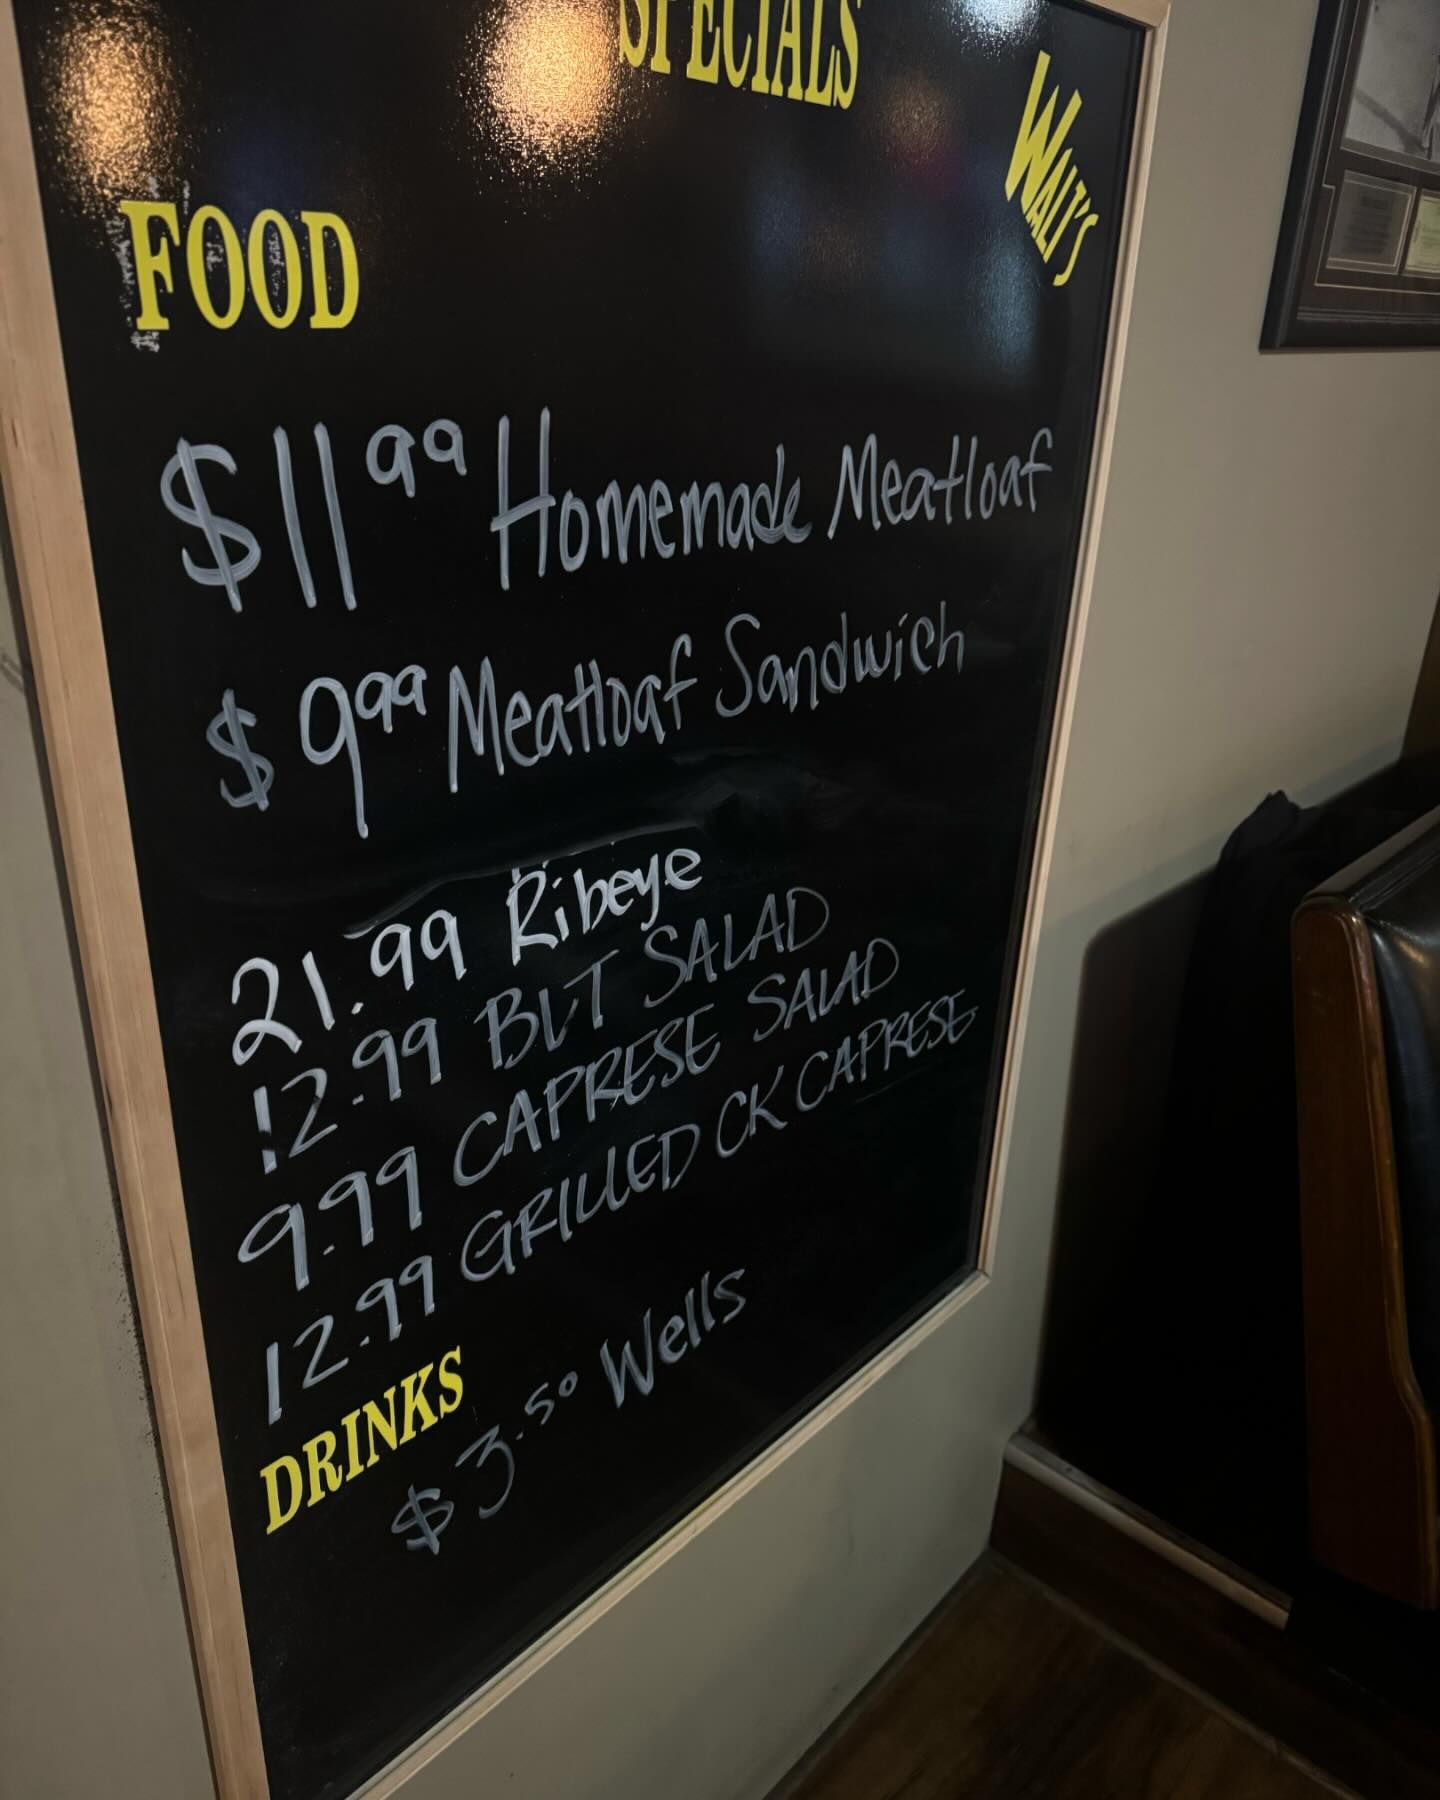 SPECIALS
WALT'S
FOOD
$11.99 Homemade Meatloaf
$9.99 Meatloaf Sandwich
21.99 Ribeye
12.99 BLT SALAD
9.99 CAPRESE SALAD
12.99 GRILLED CK CAPRESE
DRINKS
$3.50 Wells